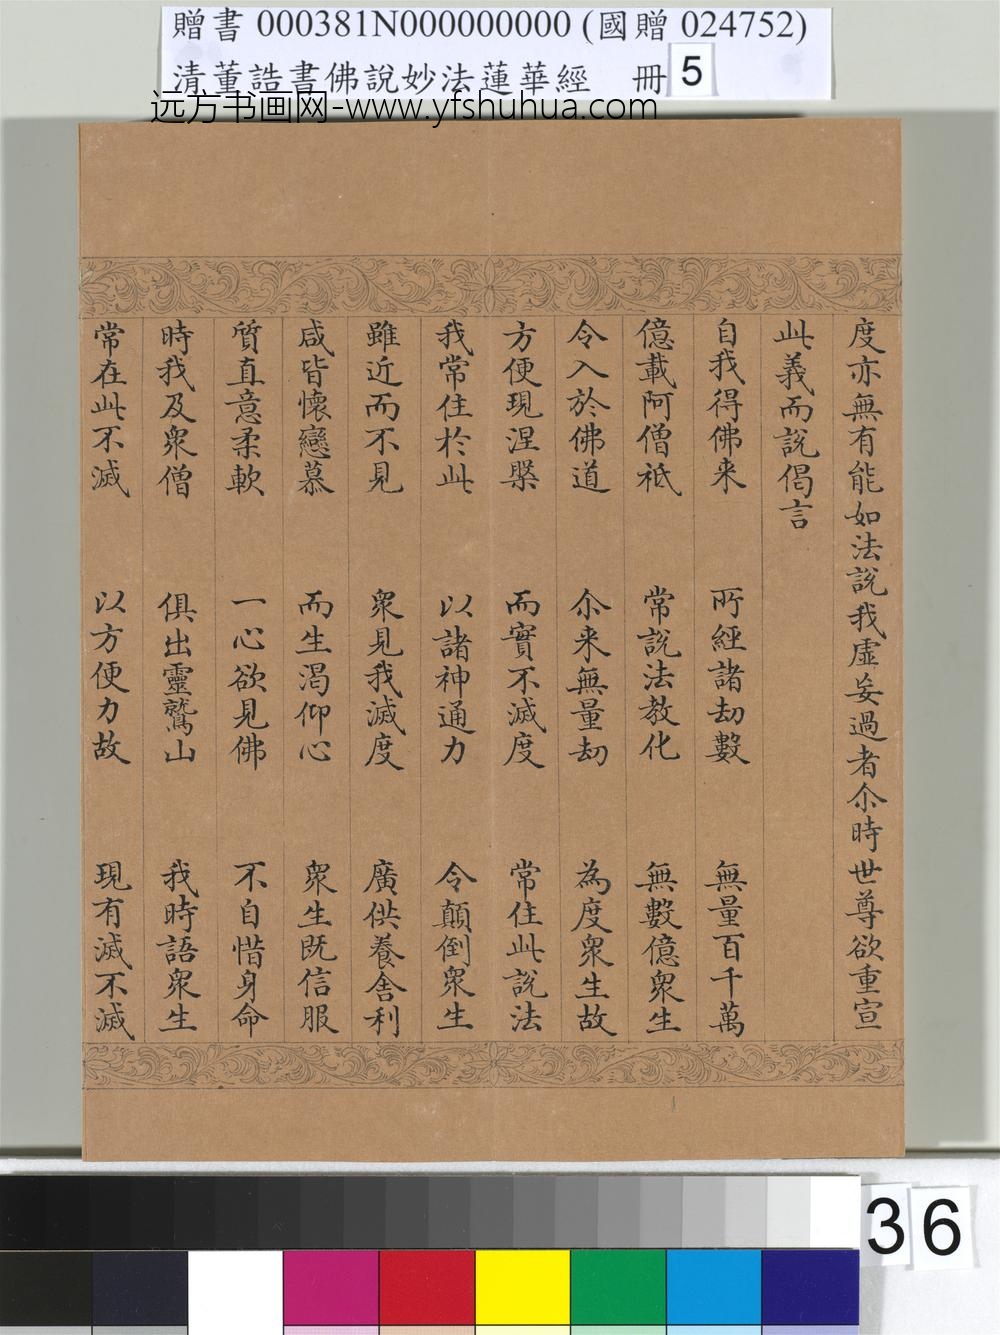 贈書 000381N000000000 (國贈 024752)
清董誥書佛說妙法蓮華經 冊 5
远方书画网-www.yfshuhua.com
度亦無有能如法說我虛妄過者尒時世尊欲重宣
此義而說偈言
自我得佛来 所經諸劫數 無量百千萬
億載阿僧祇 常說法教化 無數億眾生
令入於佛道 尒来無量劫 為度眾生故
方便現涅槃 而實不滅度 常住此說法
我常住於此 以諸神通力 令顛倒眾生
雖近而不見 眾見我滅度 廣供養舍利
咸皆懷戀慕 而生渴仰心 眾生既信服
質直意柔軟 一心欲見佛 不自惜身命
時我及眾僧 俱出靈鷲山 我時語眾生
常在此不滅 以方便力故 現有滅不滅
36